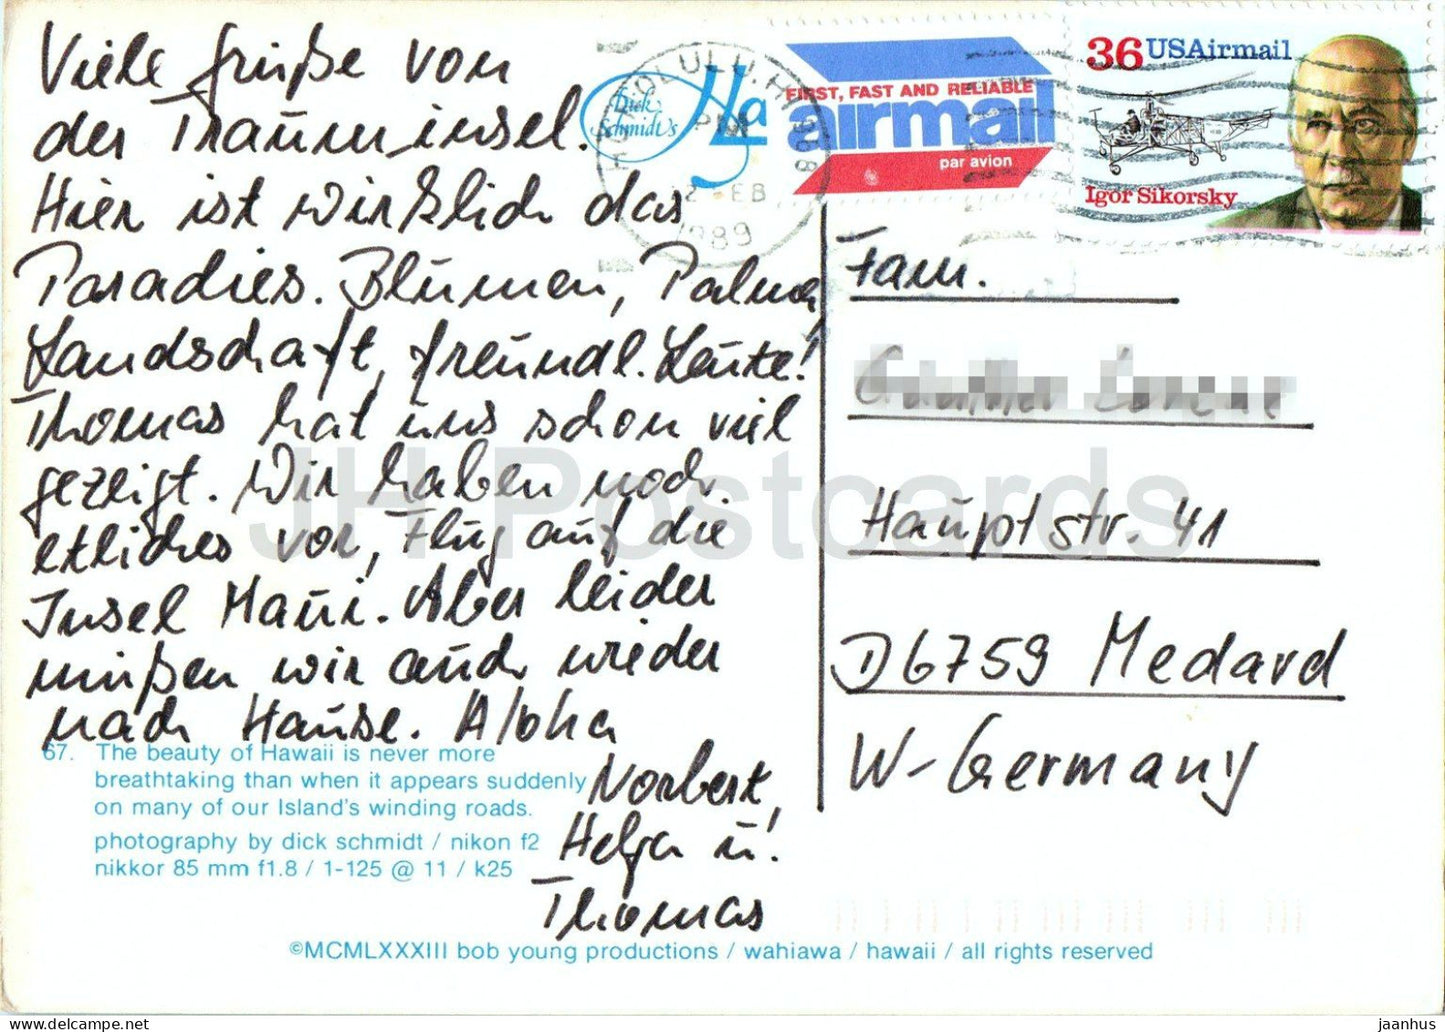 Viele Grüße von
der Trauminsel.
Hier ist wirklich das
Paradies. Blumen, Palmen
Landschaft, freundl. Leute!
Thomas hat uns schon viel
gezeigt. Wir haben noch
etliches vor, Flug auf die
Insel Maui. Aber leider
müßen wir auch wieder
nach Hause. Aloha
Norbert,
Helga u.
Thomas
67. The beauty of Hawaii is never more
breathtaking than when it appears suddenly
on many of our Island's winding roads.
photography by dick schmidt / nikon f2
nikkor 85 mm f1.8 / 1-125 @ 11 / k25
©MCMLXXXIII bob young productions / wahiawa / hawaii / all rights reserved
Dick
Schmidt's
Ha
HONOLULU, HI 968
PM
1989
FIRST, FAST AND RELIABLE
airmail
par avion
36 USAirmail
Igor Sikorsky
Fam.
Hauptstr. 41
D6759 Medard
W-Germany
JH Postcards
delcampe.net
jaanhus